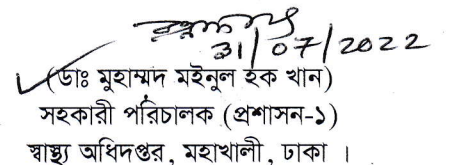 31/07/2022
(ডাঃ মুহাম্মদ মইনুল হক খান)
সহকারী পরিচালক (প্রশাসন-১)
স্বাস্থ্য অধিদপ্তর, মহাখালী, ঢাকা ।